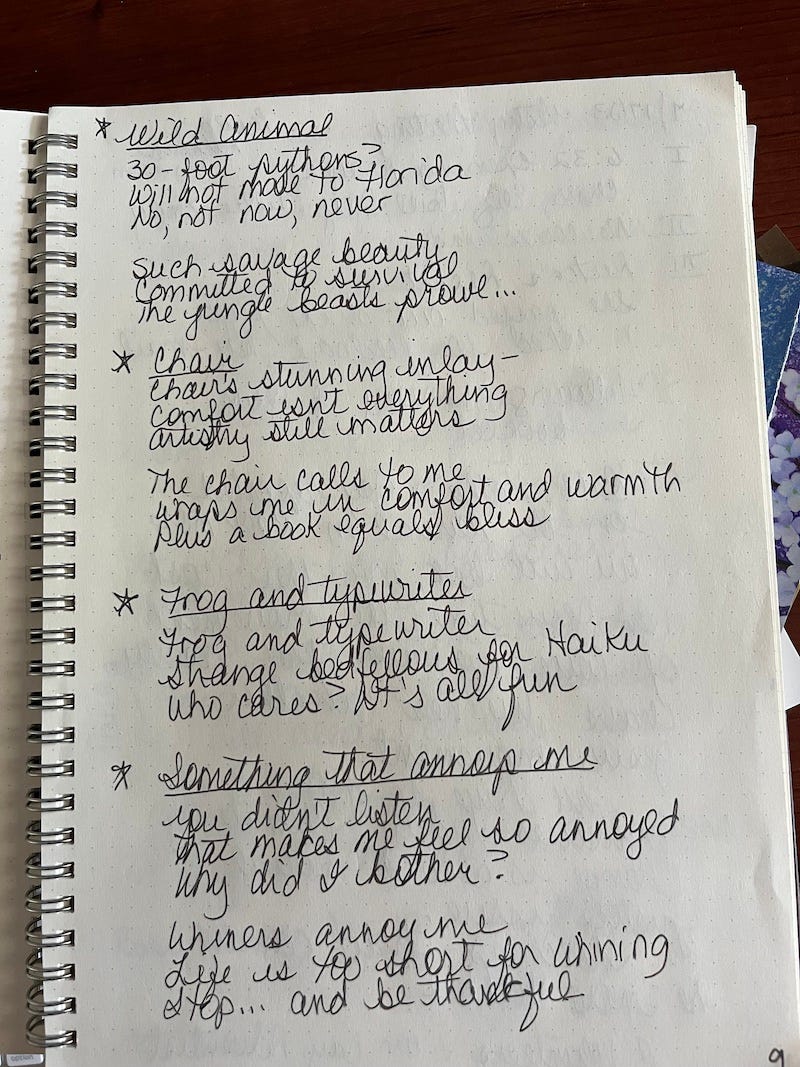 * Wild Animal
30-foot pythons?
Will not move to Florida
No, not now, never
Such savage beauty
Committed to survival
The jungle beasts prowl...
* Chair
Chair's stunning inlay-
comfort isn't everything
artistry still matters
The chair calls to me
wraps me in comfort and warmth
Plus a book equals bliss
* Frog and typewriter
Frog and typewriter
strange bedfellows for Haiku
who cares? It's all fun
* Something that annoys me
you didn't listen
that makes me feel so annoyed
Why did I bother?
Whiners annoy me
Life is too short for whining
Stop... and be thankful
9
option